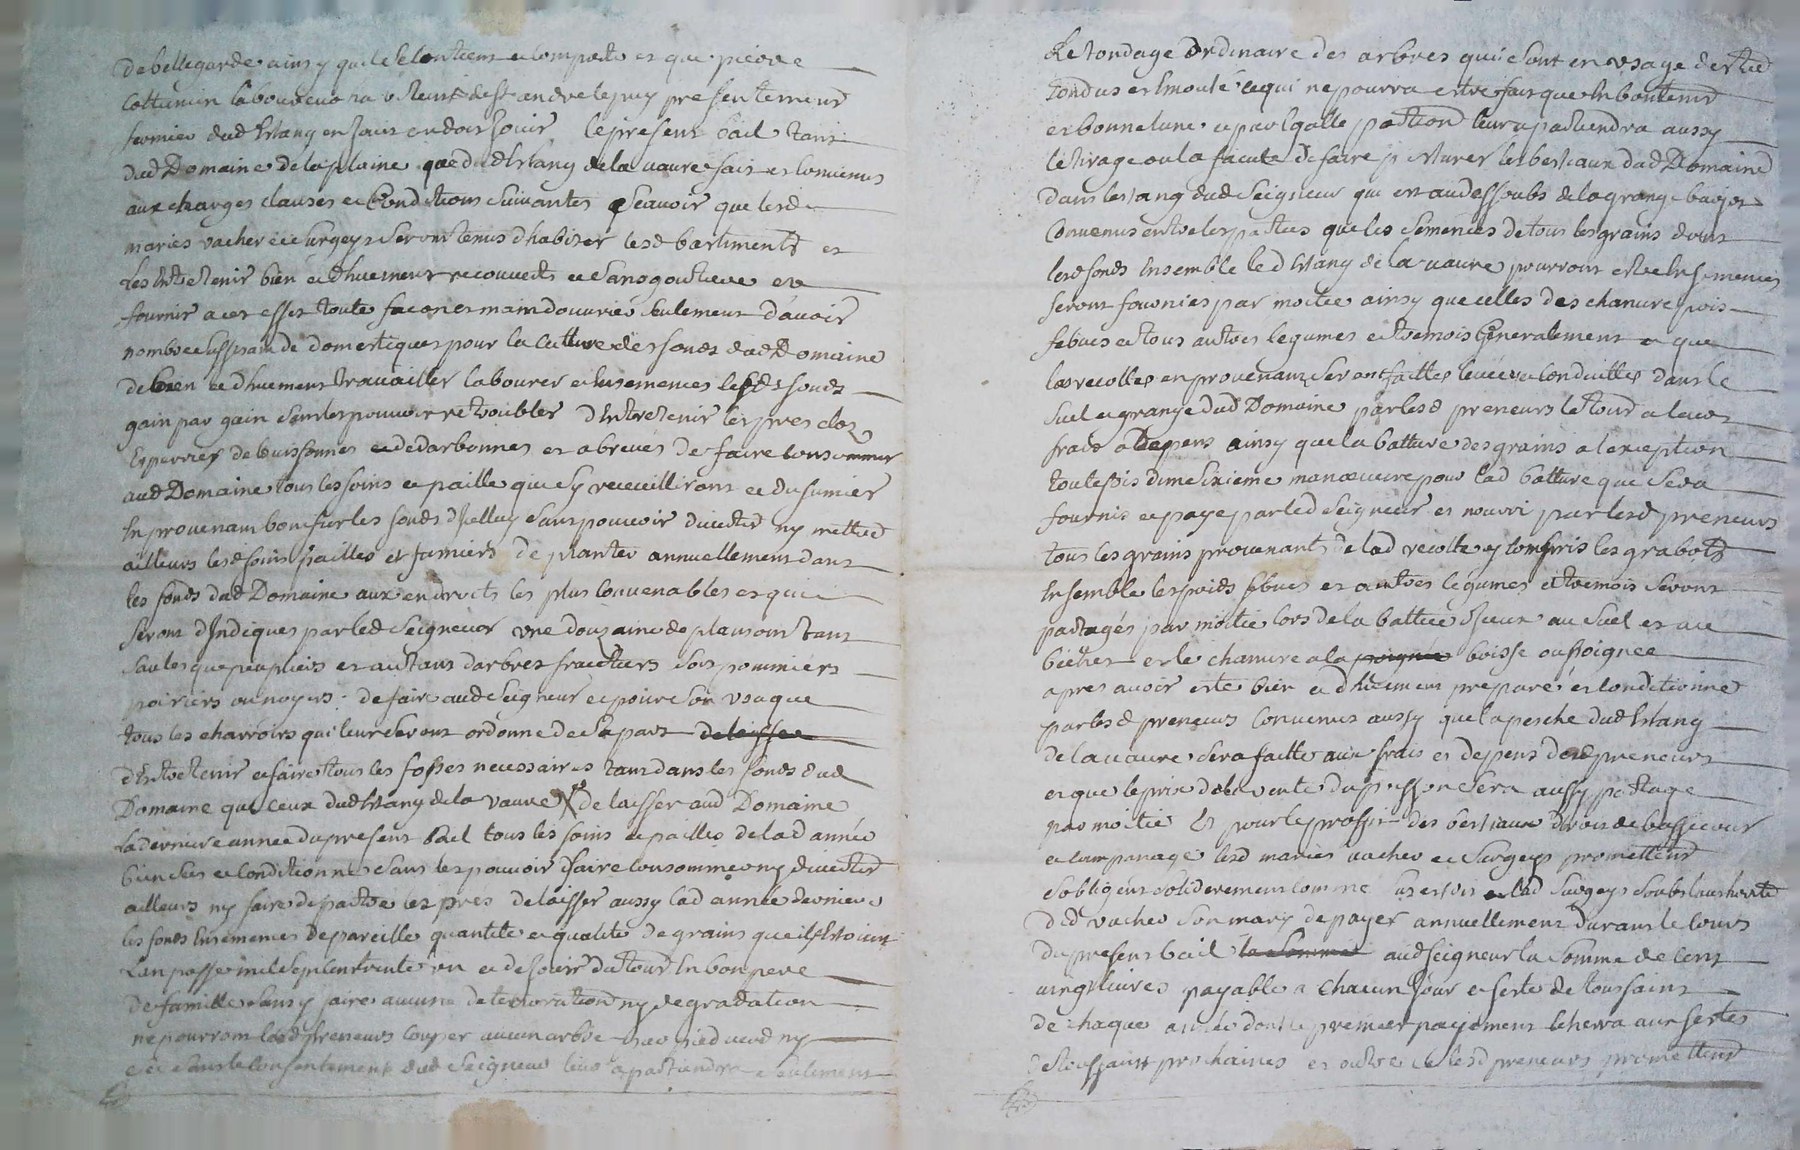 de bellegarde ainsy qu'il se contient et comporte et que pierre
Cottumin laboureur a st andre le puy presentement
fermier dud Estang en jouit ou doit jouir le present bail tant
dud Domaine de la plaine que dud Estang de la vaure fait et convenus
aux charges clauses et Conditions suivantes Scavoir que lesd
maries vacher et Surgeys seront tenus d'habiter lesd bastiments et
les Entretenir bien et dhuement recouverts et sans goutiere et
fournir a cet effet toute façon et main d'ouvriés seulement d'avoir
nombre suffisant de domestiques pour la Culture des fonds dud Domaine
de bien et dhuement travailler labourer et Ensemences lesd fonds
gain par gain sans les pouvoir retroubler d'Entretenir les pres clos
Esperriés de buissonnes et de darbonnes et abreuvés de faire consommer
aud Domaine tous les foins et paille qui sy receuilliront et du fumier
En provenant bonifier les fonds d'Jcelluy sans pouvoir divertir ny mettre
ailleurs lesd foins pailles et fumiers de planter annuellement dans
les fonds dud Domaine aux endroits les plus convenables et qui
seront Indiques par led Seigneur une douzaine de plansons tant
saules que peupliers et autant d'arbres fruitiers soit pommiers
poiriers ou noyers : de faire aud Seigneur et pour son usage
tous les charroirs qui leur seront ordonne de sa part de laisser
d'Entretenir et faire tous les fosses necessaires tant dans les fonds dud
Domaine que ceux dud Estang de la vaure de laisser aud Domaine
la derniere année du present Bail tous les foins et pailles de lad année
bien secs et conditionnés sans les pouvoir faire consommer ny divertir
ailleurs ny faire depaitre les prés de laisser aussy lad année derniere
les fonds Ensemences de pareille quantité et qualité de grains que ils Estoient
l'an passé mil sept cent trente un et de jouir du tout En bon pere
de famille sans y faire aucune deterioration ny degradation
ne pourront lesd preneurs couper aucun arbre par pied verd ny
sec sans le consentement dud Seigneur leur apartiendra seulement
Le tondage ordinaire des arbres qui sont en usage d'estre
tondus et Emouté ce qui ne pourra estre fait que En bon tems
et bonne lune et par Egalle portion leur apartiendra aussy
le tirage ou la faculté de faire paturer les bestiaux dud Domaine
dans l'estang dud Seigneur qui est au dessoubs de la grange bajot
Convenus entre les parties que les semences de tous les grains dont
lesd fonds Ensemble led Estang de la vaure pourront estre Ensemences
seront fournies par moitié ainsy que celles des chanvre pois
febves et tous autres legumes et tremois Generalement et que
les recoltes en provenant seront faittes levées et conduittes dans le
suel et grange dud Domaine par lesd preneurs le tout a leurs
frais et depens ainsy que la batture des grains a l'exception
toutefois d'une sixieme manoeuvre pour lad batture que sera
fournie et payé par led Seigneur et nourri par lesd preneurs
tous les grains provenants de lad recolte y compris les grabots
Ensemble les poids febves et autres legumes et tremois seront
partagés par moitié lors de la batture d'Jceux au suel et au
bichet et le chanvre a la poignee boisse ou poignée
apres avoir esté bien et dhuement preparé et conditionné
par lesd preneurs Convenus aussy que la pesche dud Estang
de la vaure sera faitte aux frais et depens desd preneurs
et que le prix de la vente du poisson sera aussy partagé
par moitié Et pour le proffit des bestiaux droit de bassecour
et companage lesd maries vacher et Surgeys promettent
s'obligent solidairement comme et lad Surgeys soubs l'authorité
dud vacher son mary de payer annuellement durant le cours
du present bail la somme aud Seigneur la somme de cent
vingt livres payable a chacun jour et feste de toussaint
de chaque année dont le premier payement Echerra aux festes
de toussaint prochaines et outre ce lesd preneurs promettent